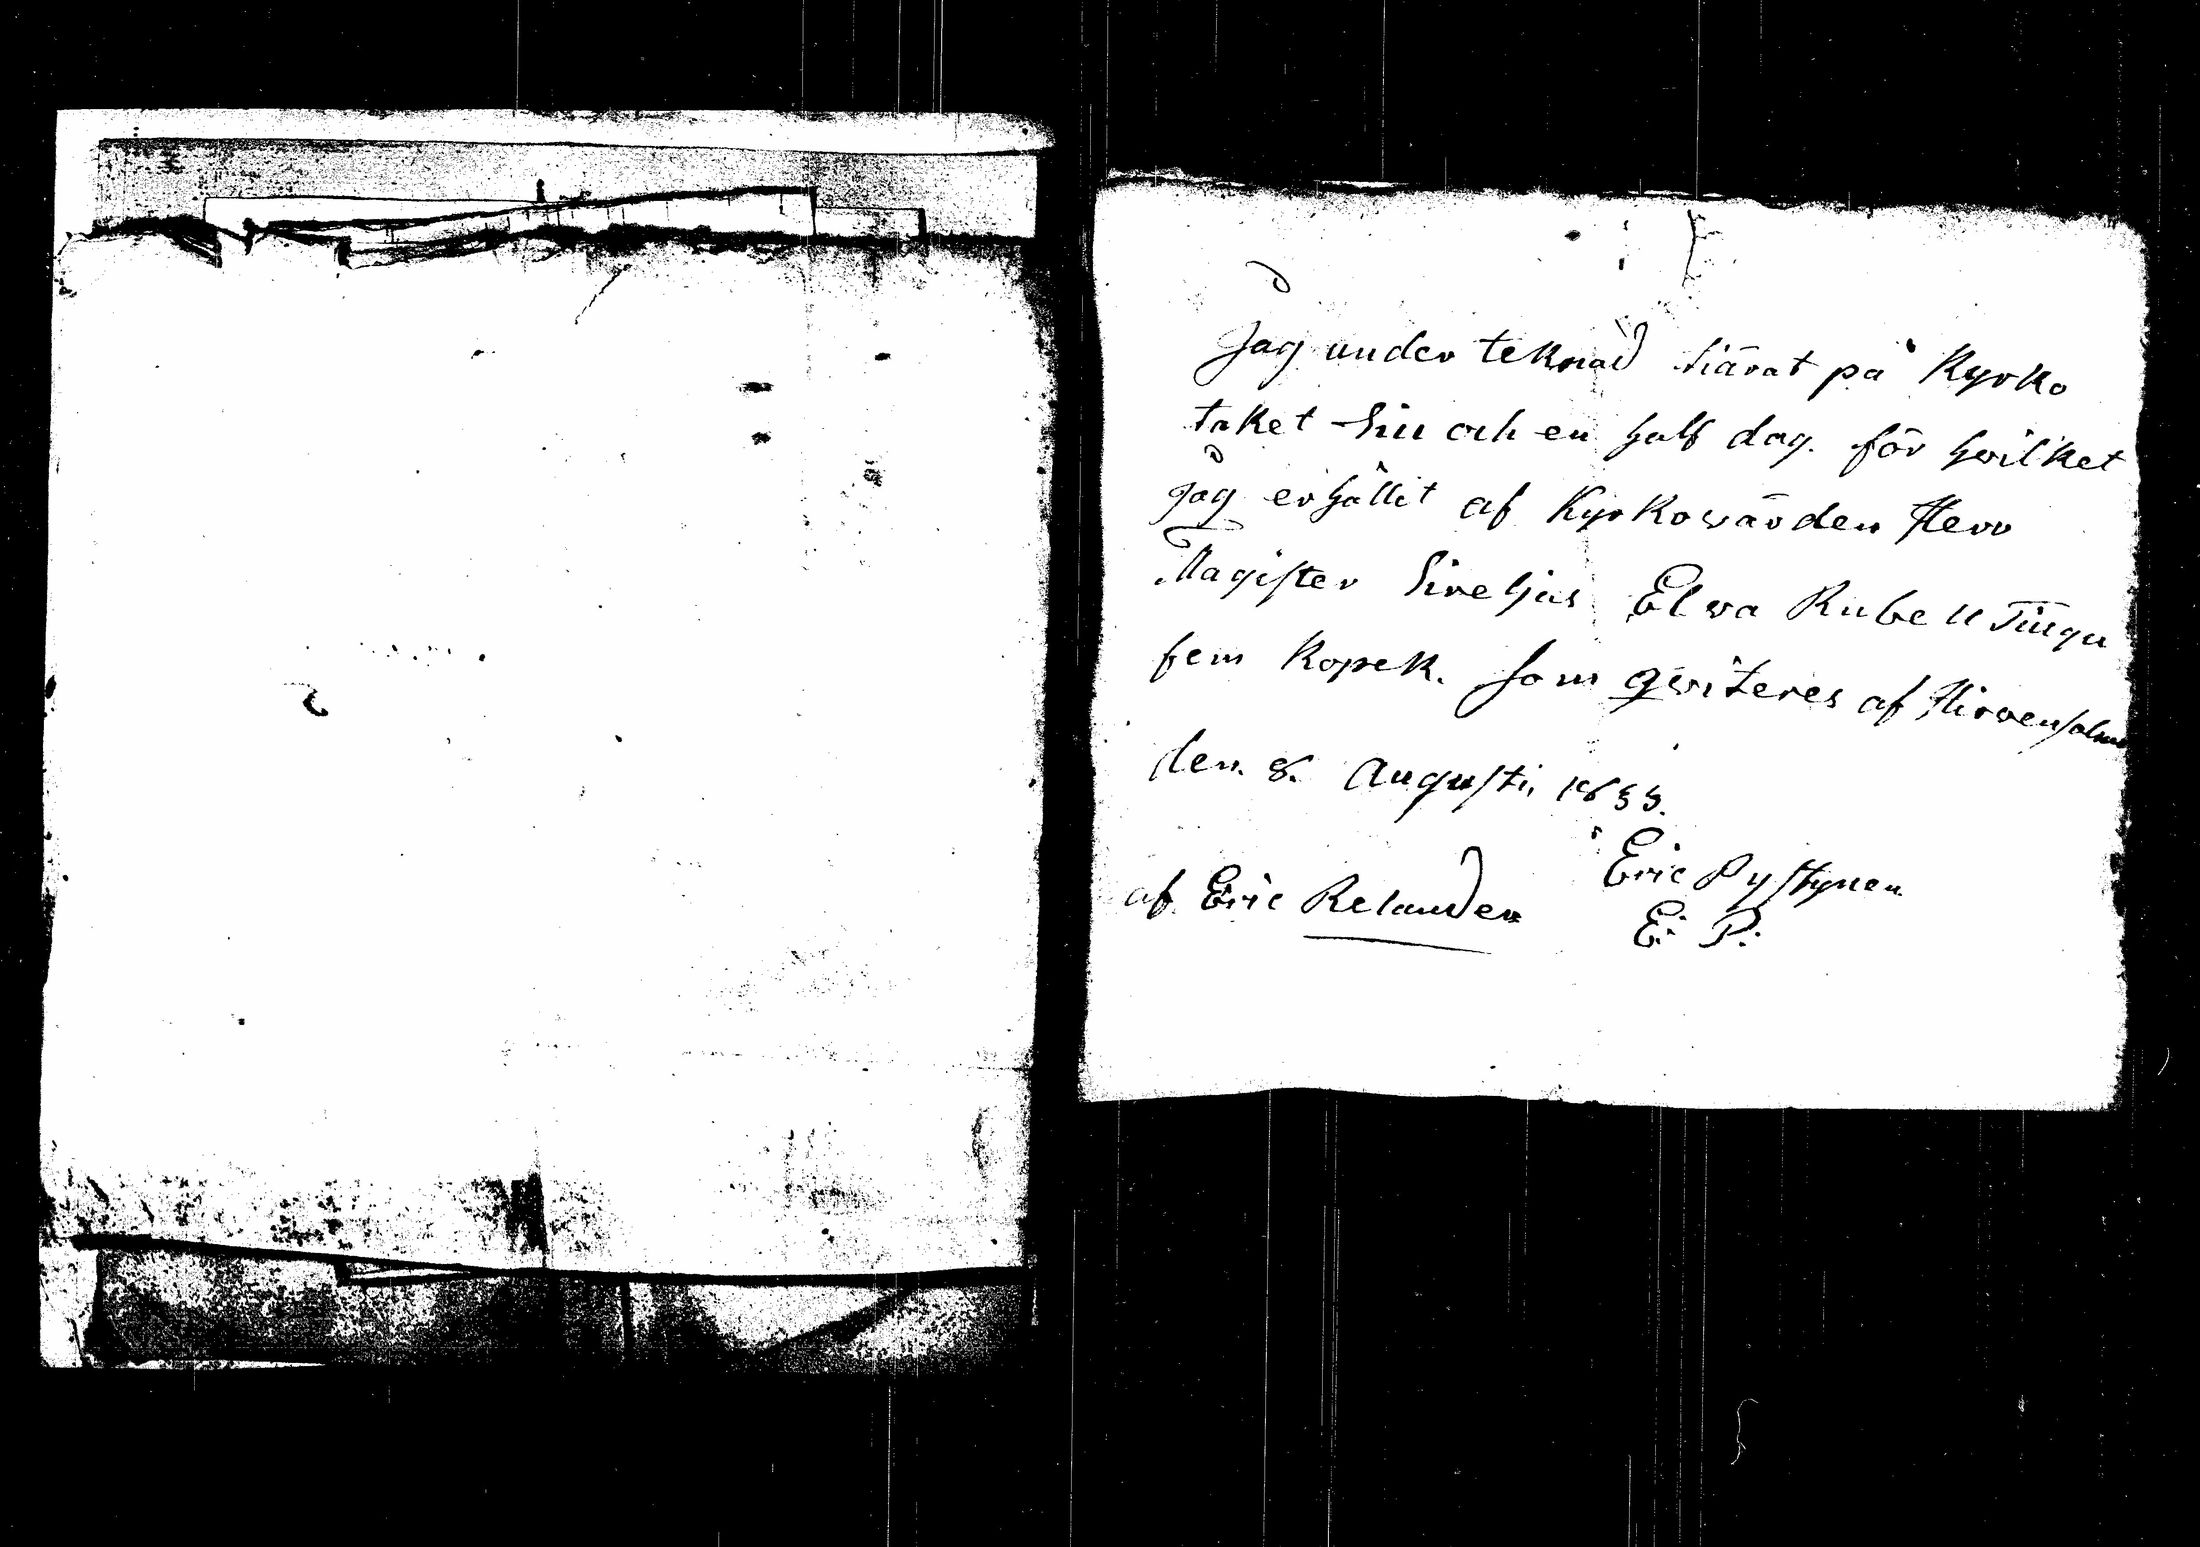 Jag under teknad tiärat på Kyrko
taket Siu och en half dag. för hwilket
Jag erhållit af Kyrkowärden Herr
Magister Sireljus Elwa Rubell Tiugu
fem Kopek. som qwiteres af Hirvensalmi
den. 8. Augusti, 1833.
Eric Pystynen
af Eric Relander
E: P: